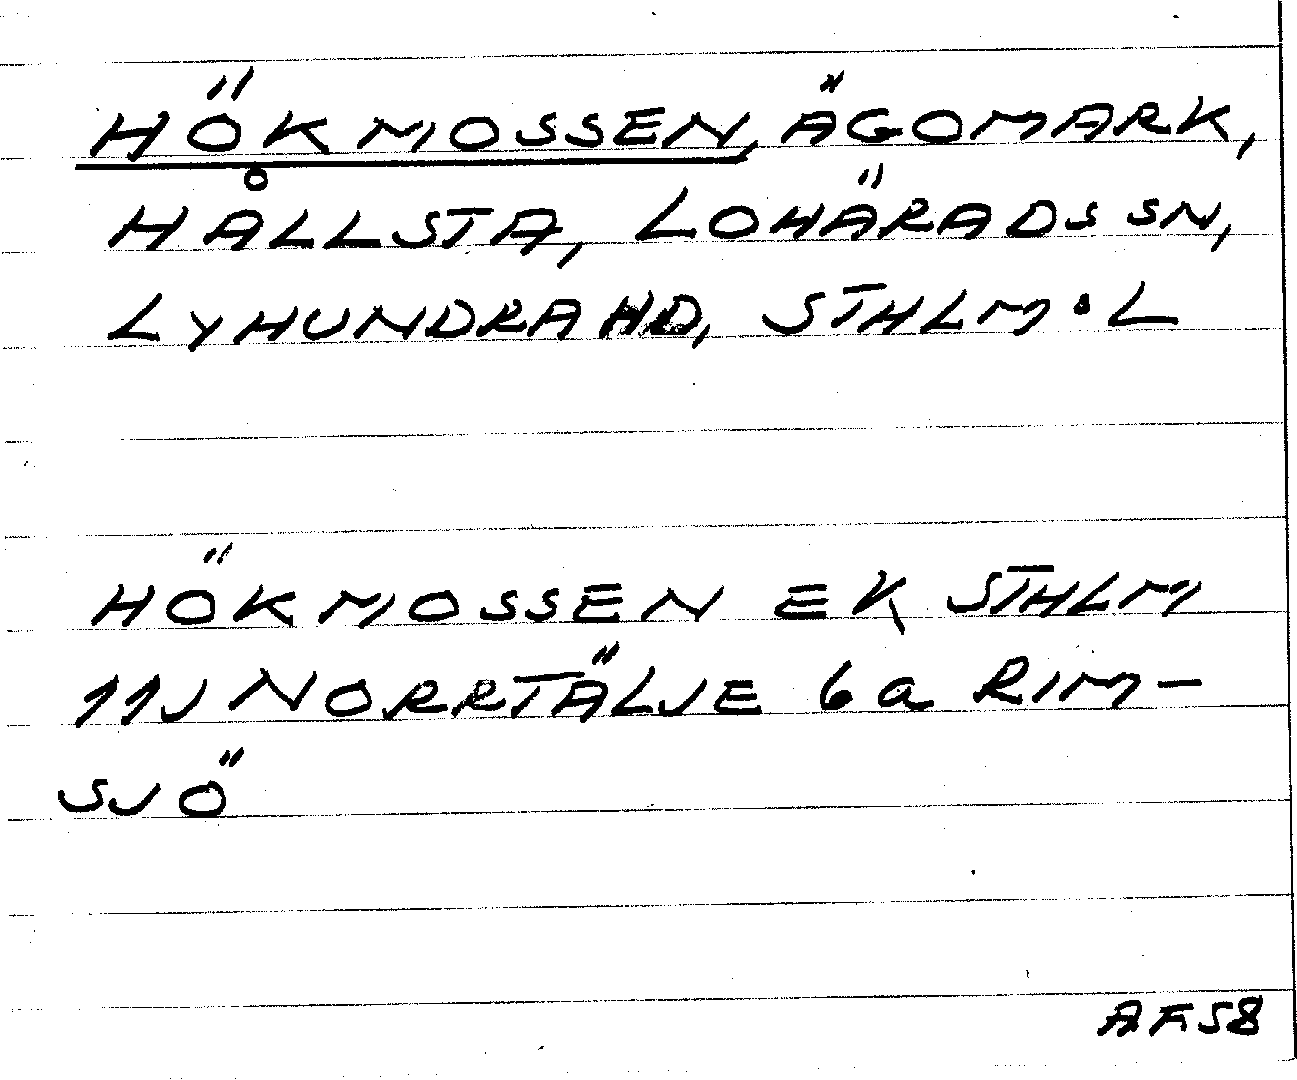 HÖKMOSSEN, ÄGOMARK,
HÅLLSTA, LOHÄRADS SN,
LYHUNDRA HD, STHLM • L
HÖKMOSSEN EK STHLM
11J NORRTÄLJE 6a RIM-
SJÖ
AF58